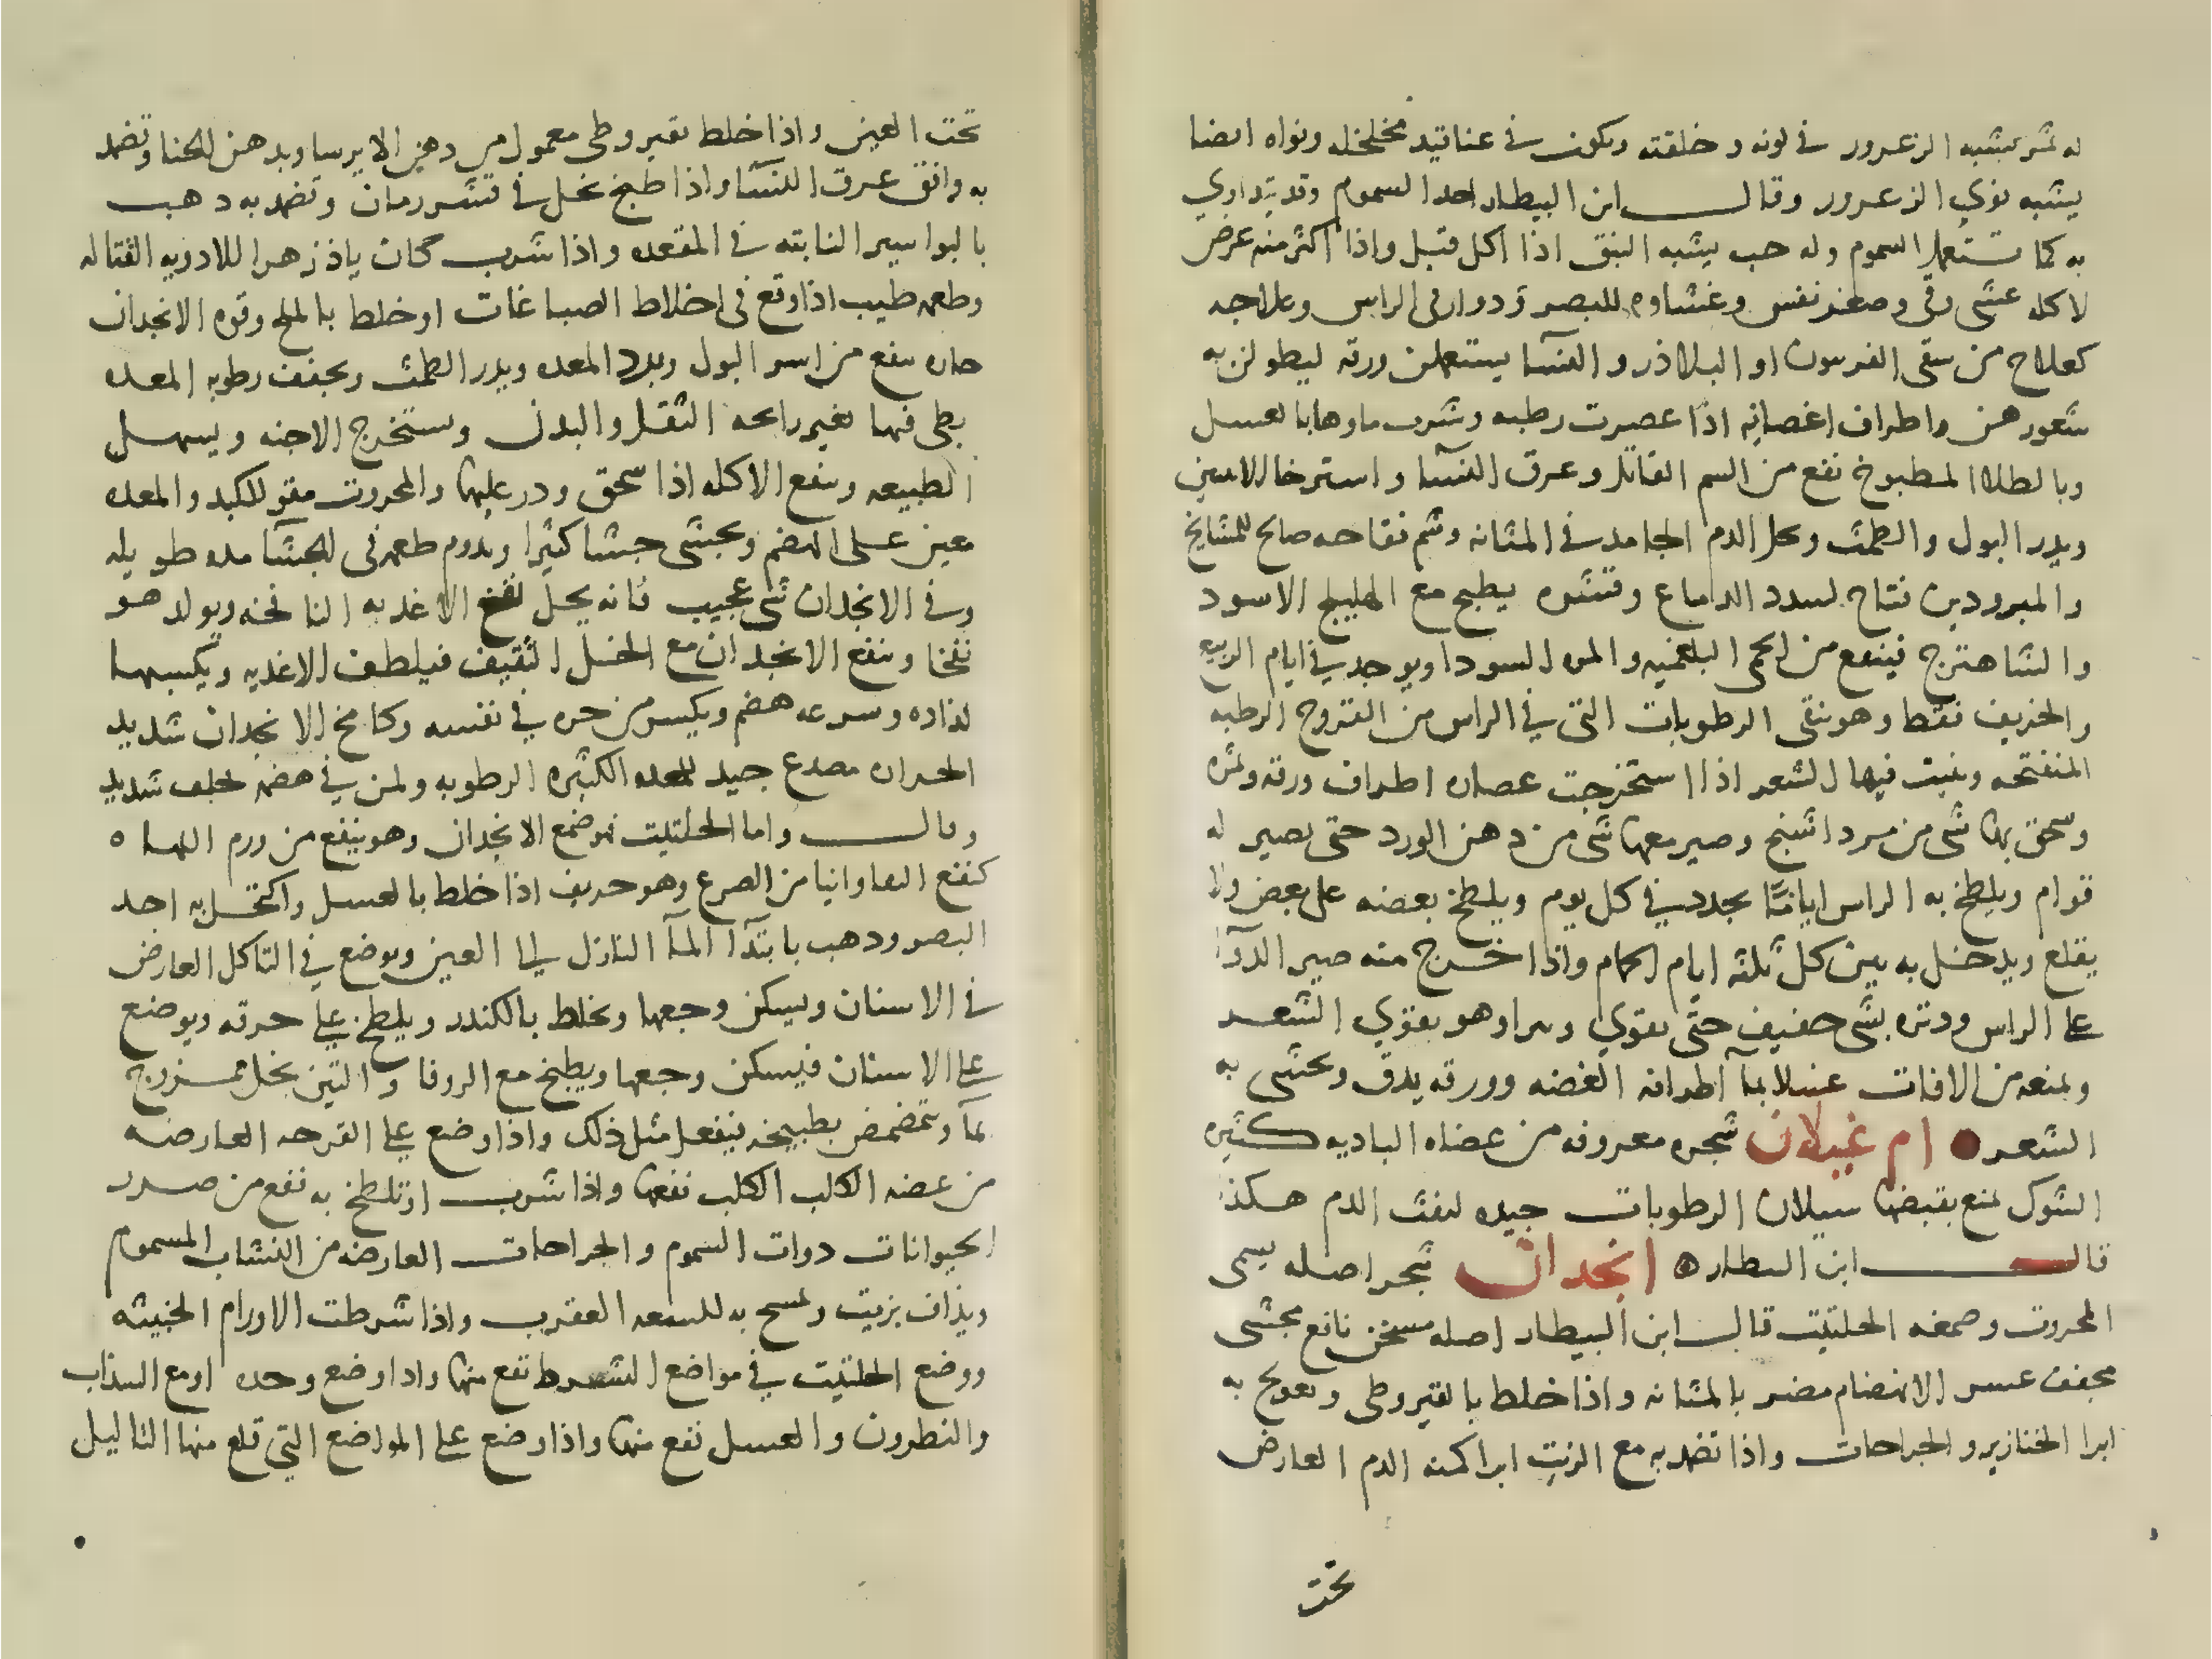 له ثمر يشبه الزعرور في لونه وخلقته ويكون في عناقيد مخلخله ونواه ايضا
يشبه نوي الزعرور وقال ابن البيطار احد السموم وقد يتداوي
به كما تستعمل السموم وله حب يشبه النبق اذا اكل قتل واذا اكثر منه عرض
لاكله غشي وقي وصغر نفس وغشاوه للبصر ودوار في الراس وعلاجه
كعلاج من سقي الفربيون او البلاذر والنسا يستعملن ورقه ليطولن به
شعورهن واطراف اغصانه اذا عصرت رطبه وشرب ماوها بالعسل
وبالطلا المطبوخ نفع من السم القاتل وعرق النسا واسترخا الانثيين
ويدر البول والطمث ويحل الدم الجامد في المثانه وشم فقاحه صالح للمشايخ
والمبرودين فتاح لسدد الدماغ وقشره يطبخ مع الهليلج الاسود
والشاهترج فينفع من الحمى البلغميه والمره السودا ويوجد في ايام الربيع
والخريف فقط وهو ينقي الرطوبات التي في الراس من القروح الرطبه
المنفتحه وينبت فيها الشعر اذا استخرجت عصاره اطراف ورقه وثمره
وسحق بها شي من مرداسنج وصير معها شي من دهن الورد حتى يصير له
قوام ويلطخ به الراس اياما يجدد في كل يوم ويلطخ بعضه على بعض ولا
يقلع ويدخل به بين كل ثلثه ايام الحمام واذا خرج منه صير الدوا
على الراس ودثره بشي خفيف حتى يقوي ويبرا وهو يقوي الشعر
ويمنعه من الافات غسلا بما اطرافه الغضه وورقه يدق ويحشى به
الشعر ● ام غيلان شجره معروفه من عضاه الباديه كثيره
الشوك تمنع بقبضها سيلان الرطوبات جيده لنفث الدم هكذا
قال ابن البيطار ه انجدان شجر اصله يسمى
المحروت وصمغه الحلتيت قال ابن البيطار اصله مسخن نافع مجشي
مجفف عسر الانهضام مضر بالمثانه واذا خلط بالقيروطي وتعولج به
ابرا الخنازير والجراحات واذا تضمد به مع الزيت ابرا كمنه الدم العارض
تحت
تحت العين واذا خلط بقيروطي معمول من دهن الايرسا وبدهن الحنا وتضمد
به وافق عرق النسا واذا طبخ بخل في قشر رمان وتضمد به ذهب
بالبواسير النابته في المقعده واذا شرب كان باذزهرا للادويه القتاله
وطعمه طيب اذا وقع في اخلاط الصباغات او خلط بالملح وقوه الانجدان
حاره ينفع من اسر البول وبرد المعده ويدر الطمث ويجفف رطوبه المعده
بطي فيها يغير رائحه الثفل والبدن ويستخرج الاجنه ويسهل
الطبيعه وينفع الاكله اذا سحق وذر عليها والمحروت مقو للكبد والمعده
معين على الهضم ويجشي جشا كثيرا ويدوم طعمه في الجشا مده طويله
وفي الانجدان شي عجيب فانه يحل نفخ الاغذيه النافخه ويولد هو
نفخا وينفع الانجدان مع الخل الثقيف فيلطف الاغذيه ويكسبها
لذاذه وسرعه هضم ويكسر من حره في نفسه وكامخ الانجدان شديد
الحراره مصدع جيد للمعده الكثيره الرطوبه ولمن في هضمه تخلف شديد
وقال واما الحلتيت فهو صمغ الانجدان وهو ينفع من ورم اللهاه
كنفع الفاوانيا من الصرع وهو حريف اذا خلط بالعسل واكتحل به احد
البصر وذهب بابتدا الما النازل الى العين ويوضع في التاكل العارض
في الاسنان ويسكن وجعها ويخلط بالكندر ويلطخ على خرقه ويوضع
على الاسنان فيسكن وجعها ويطبخ مع الزوفا والتين بخل ممزوج
بما ويتمضمض بطبيخه فيفعل مثل ذلك واذا وضع على القرحه العارضه
من عضه الكلب الكلب نفعها واذا شرب او تلطخ به نفع من ضرر
الحيوانات ذوات السموم والجراحات العارضه من النشاب المسموم
ويذاف بزيت ويمسح به للسعه العقرب واذا شرطت الاورام الخبيثه
ووضع الحلتيت في مواضع الشرط نفع منها واذا وضع وحده او مع السذاب
والنطرون والعسل نفع منها واذا وضع على المواضع التي قلع منها الثاليل